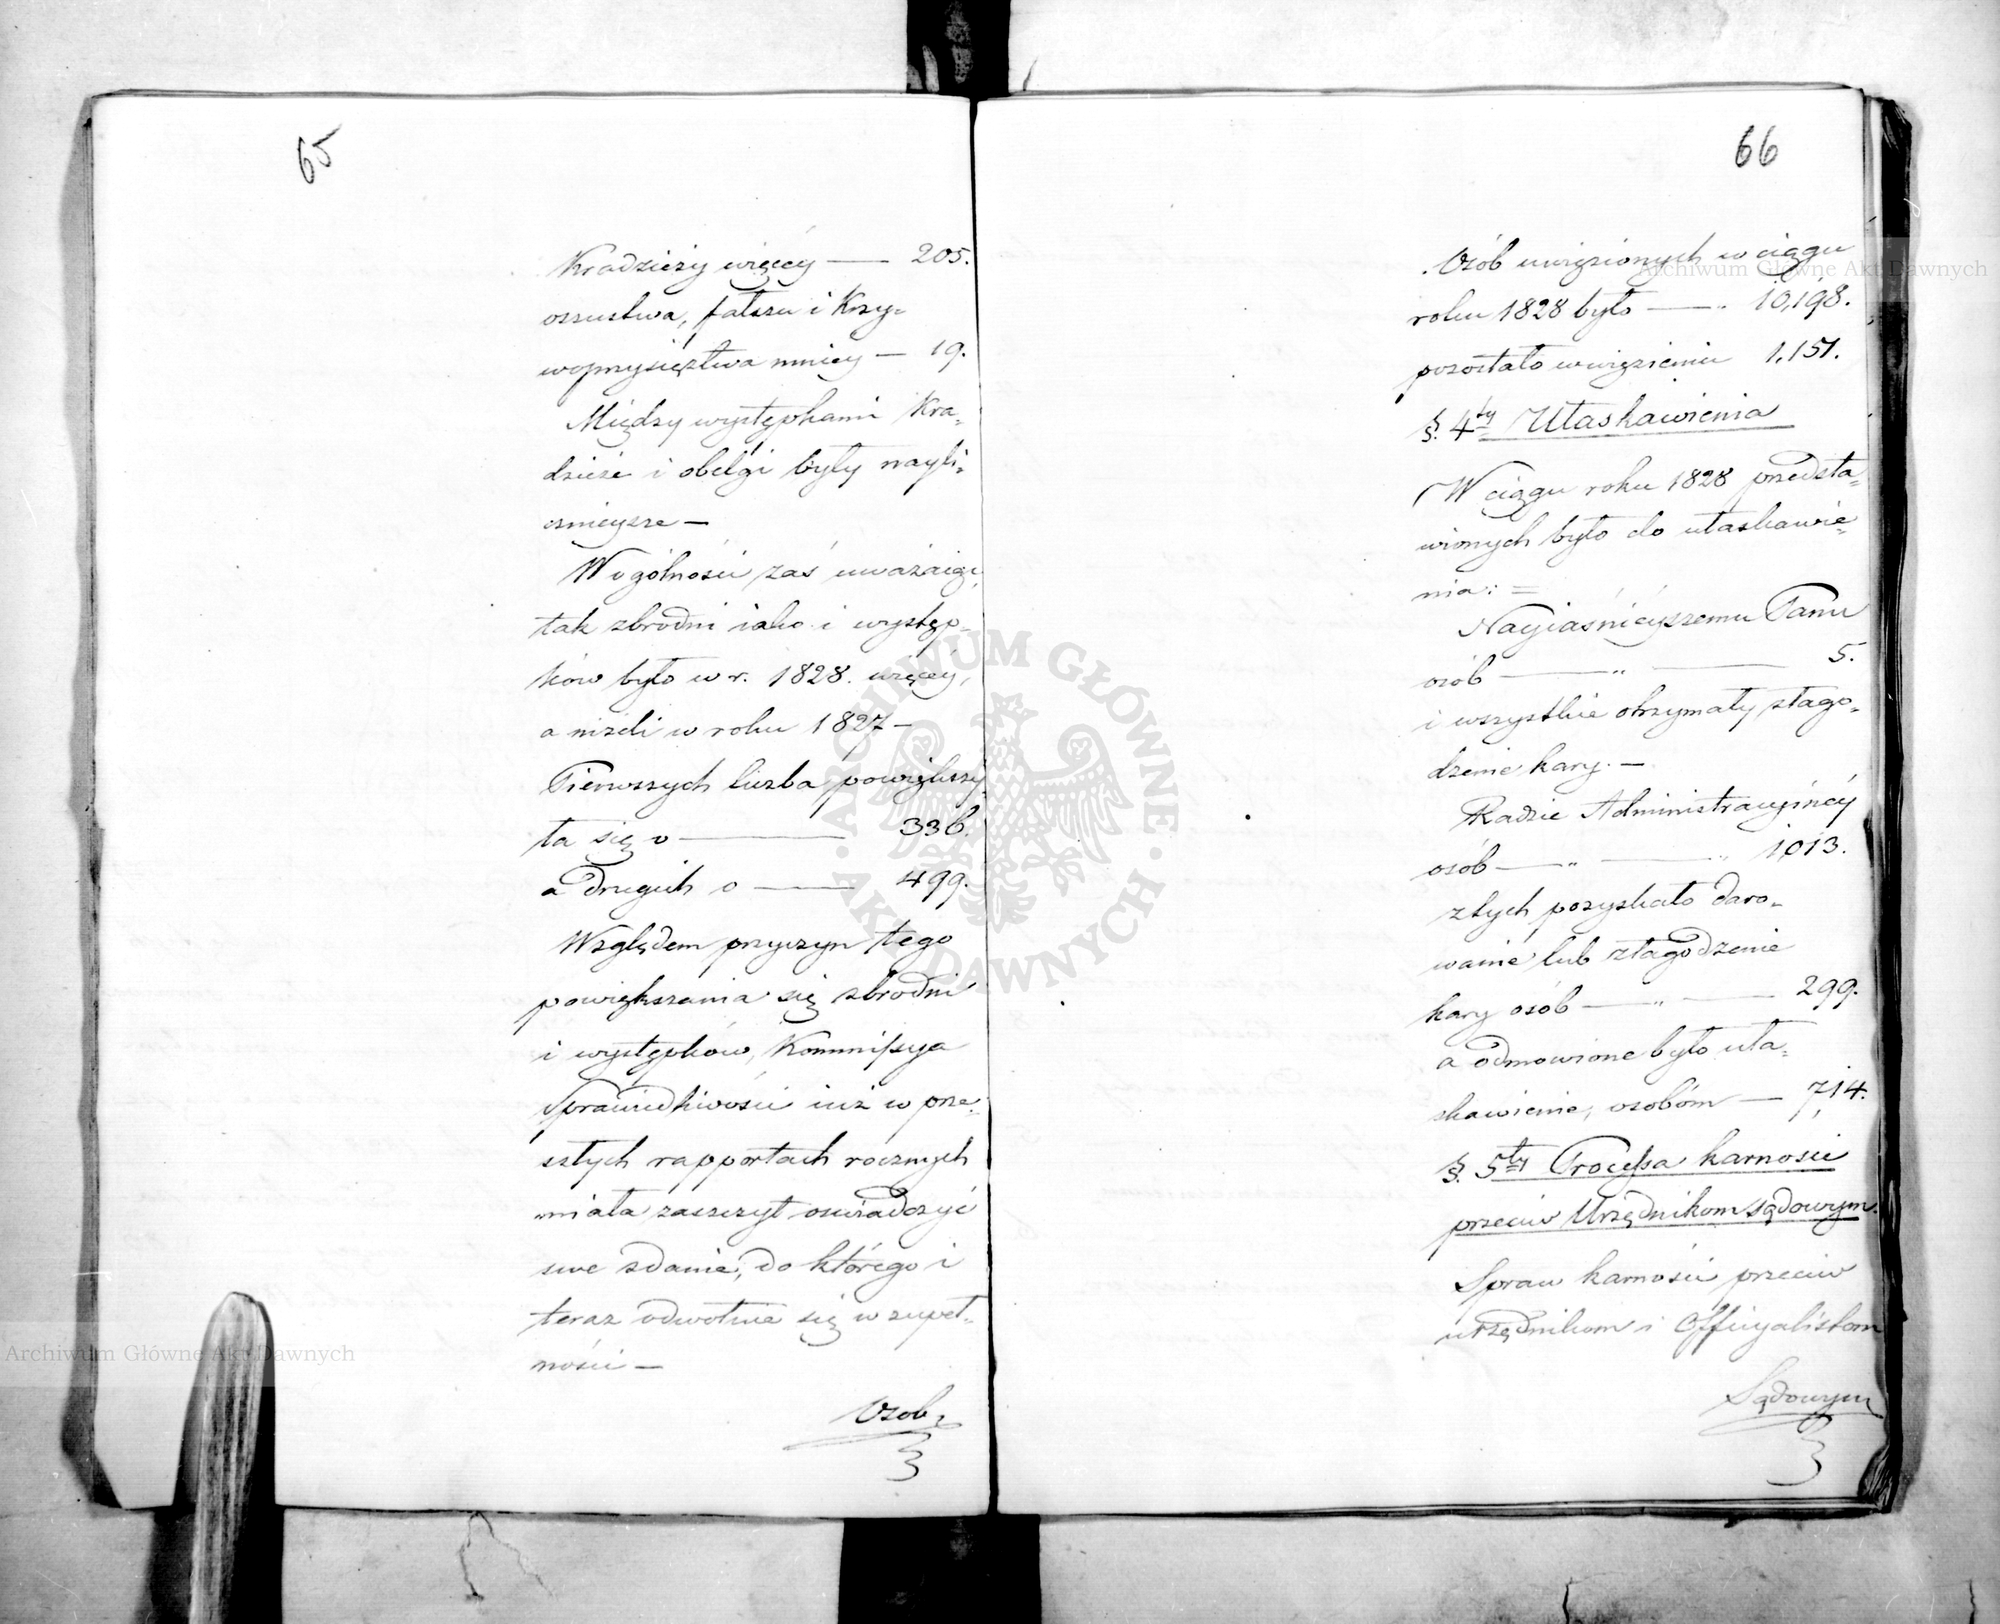 65
Kradzieży więcéy — 205.
oszustwa, fałszu i Krzy=
woprzysięztwa mniéy — 19.
Między występkami Kra=
dzieże i obelgi były nayli=
cznieysze —
W ogólności zaś uważaiąc,
tak zbrodni iako i występ=
ków było w r. 1828. więcéy,
a niżeli w roku 1827 —
Pierwszych liczba powiększy=
ła się o — 336.
a drugich o — 499.
Względem przyczyn tego
powiększania się zbrodni
i występków, Kommissya
Sprawiedliwości iuż w prze=
szłych rapportach rocznych
miała zaszczyt oświadczyć
swe zdanie, do którego i
teraz odwołuie się w zupeł=
ności —
Osob,
66
Osób uwięzionych w ciągu
roku 1828 było — " 10,198.
pozostało w więzieniu 1,151.
§. 4ty Ułaskawienia
W ciągu roku 1828 przedsta=
wionych było do ułaskawie=
nia: =
Nayiaśnieyszemu Panu
osób — " — 5.
i wszystkie otrzymały złago=
dzenie kary. —
Radzie Administracyinéy
osób — " — " 1,013.
z tych pozyskało daro=
wanie lub złagodzenie
kary osób — " — 299.
a odmówione było uła=
skawienie, osobom — 714.
§. 5ty Processa karności
przeciw Urzędnikom sądowym.
Spraw karności przeciw
urzędnikom i Officyalistom
Sądowym
Archiwum Główne Akt Dawnych
Archiwum Główne Akt Dawnych
· ARCHIWUM GŁÓWNE · AKT DAWNYCH